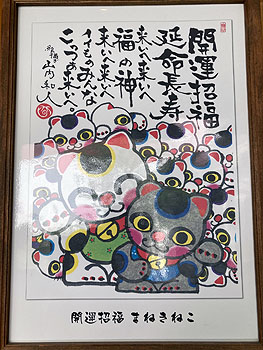 開運招福
延命長寿
来いへ来いへ
福の神
来いへ来いへ
イイものみんな
こっつぁ来いへ。
山内和人
開運招福 まねきねこ